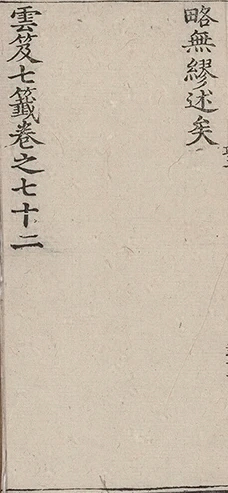 略無繆述矣
雲笈七籤卷之七十二